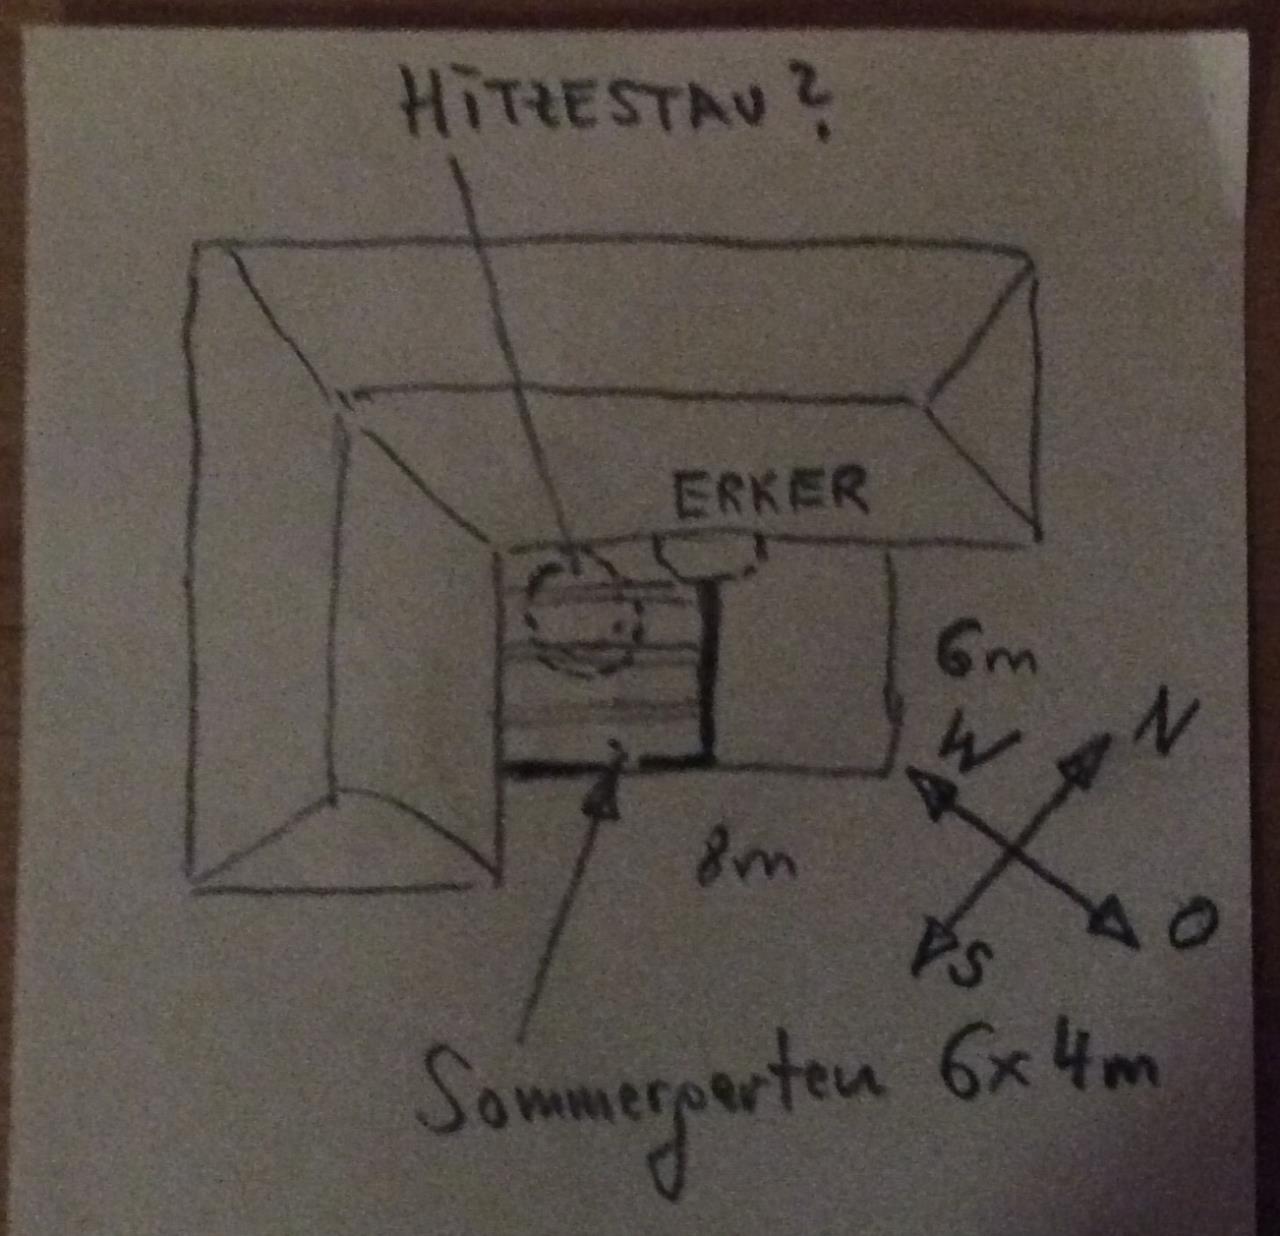 HITZESTAU?
ERKER
6m
W N
8m
S O
Sommergarten 6x4m